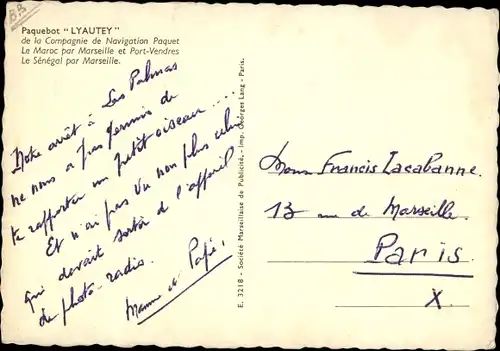 B.B
Paquebot "LYAUTEY"
de la Compagnie de Navigation Paquet
Le Maroc par Marseille et Port-Vendres
Le Sénégal par Marseille.
Notre arrêt à Las Palmas
ne nous a pas permis de
te rapporter un petit oiseau....
Et n'ai pas vu non plus celui
qui devait sortir de l'appareil
de photo-radio.
Mamie et Papé.
E. 3218 - Société Marseillaise de Publicité. - Imp. Georges Lang - Paris.
Francis Lacabanne.
13 rue de Marseille.
Paris
X.